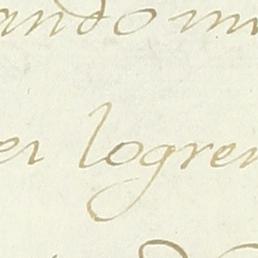 ando mu
er logren